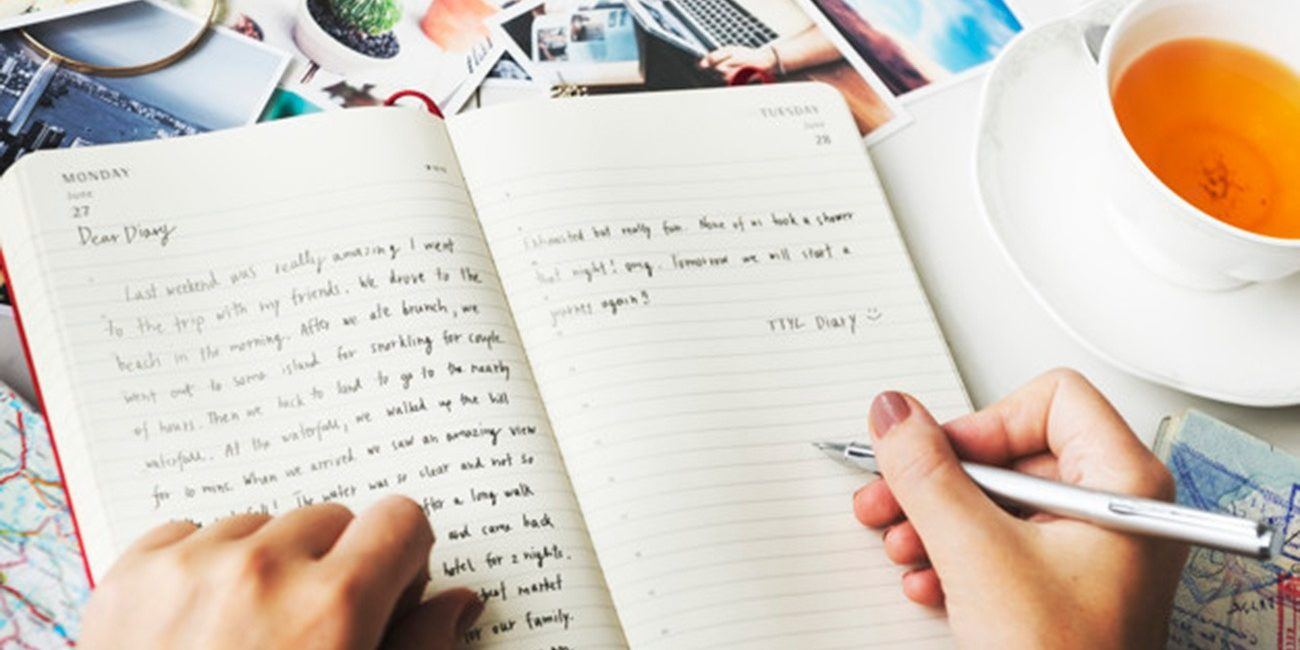 MONDAY
June
27
Dear Diary
Last weekend was really amazing I went
to the trip with my friends. We drove to the
beach in the morning. After we ate brunch, we
went out to some island for snorkling for couple
of hours. Then we back to land to go to the nearby
waterfall. At the waterfall, we walked up the hill
for 10 mins. When we arrived we saw an amazing view
The water was so clear and not so
after a long walk
and came back
hotel for 2 nights.
market
for our family.
TUESDAY
June
28
Exhausted but really fun. None of us took a shower
that night! omg. Tomorrow we will start a
again!
TTYL Diary